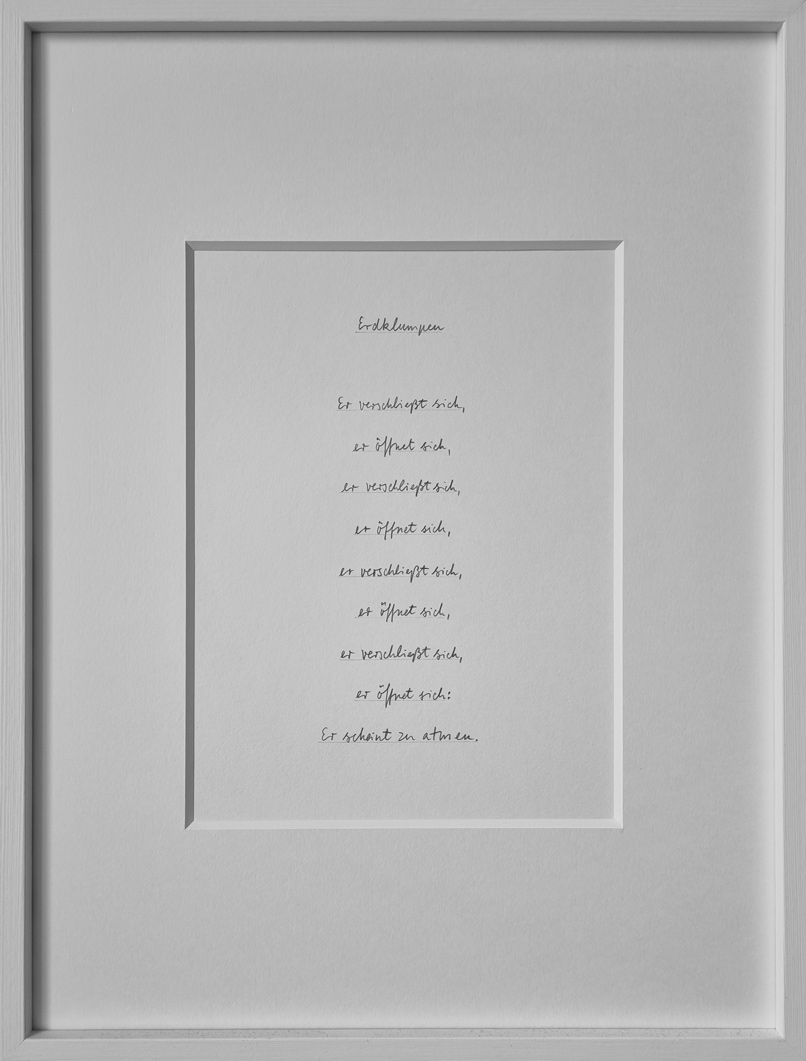 Erdklumpen
Er verschließt sich,
er öffnet sich,
er verschließt sich,
er öffnet sich,
er verschließt sich,
er öffnet sich,
er verschließt sich,
er öffnet sich:
Er scheint zu atmen.